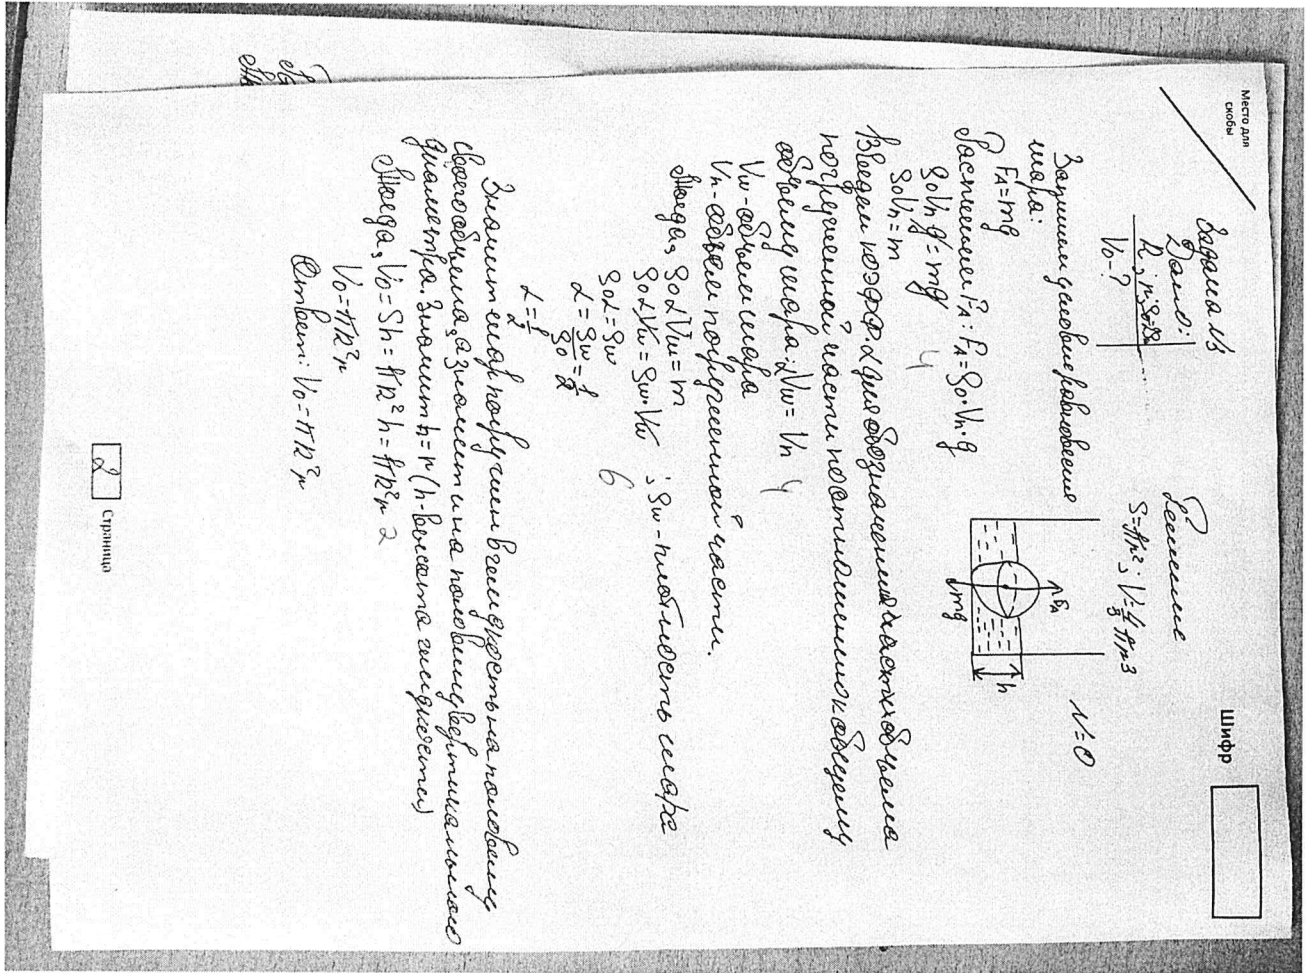 Место для
скобы
Шифр
Задача №3
Дано:
R; r;
V₀-?
Решение
S=πr²; V=4/3 πr³
N=0
Запишем условие равновесия
шара:
F_A=mg
Распишем F_A: F_A=ρ₀·Vп·g
ρ₀Vпg=mg
ρ₀Vп=m
4
F_A
mg
h
Введём коэфф. α для обозначения части объёма
погруженной части по отношению к общему
объему шара: αVш=Vп 4
Vш-объем шара
Vп-объем погруженной части.
Тогда, ρ₀αVш=m
ρ₀αVш=ρш·Vш ; ρш-плотность шара
ρ₀α=ρш 6
α=ρш/ρ₀=1/2
α=1/2
Значит шар погружен в жидкость на половину
своего объема, а значит и на половину вертикального
диаметра. Значит h=r (h-высота жидкости)
Тогда, V₀=Sh=πR²h=πR²r 2
V₀=πR²r
Ответ: V₀=πR²r
2
Страница